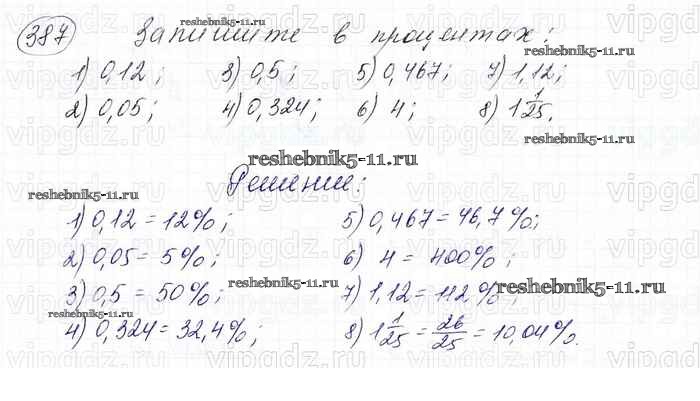 387 Запишите в процентах:
1) 0,12; 3) 0,5; 5) 0,467; 7) 1,12;
2) 0,05; 4) 0,324; 6) 4; 8) 1 1/25.
Решение:
1) 0,12 = 12%; 5) 0,467 = 46,7%;
2) 0,05 = 5%; 6) 4 = 400%;
3) 0,5 = 50%; 7) 1,12 = 112%;
4) 0,324 = 32,4%; 8) 1 1/25 = 26/25 = 10,04%.
reshebnik5-11.ru
reshebnik5-11.ru
reshebnik5-11.ru
reshebnik5-11.ru
reshebnik5-11.ru
reshebnik5-11.ru
reshebnik5-11.ru
vipgdz.ru